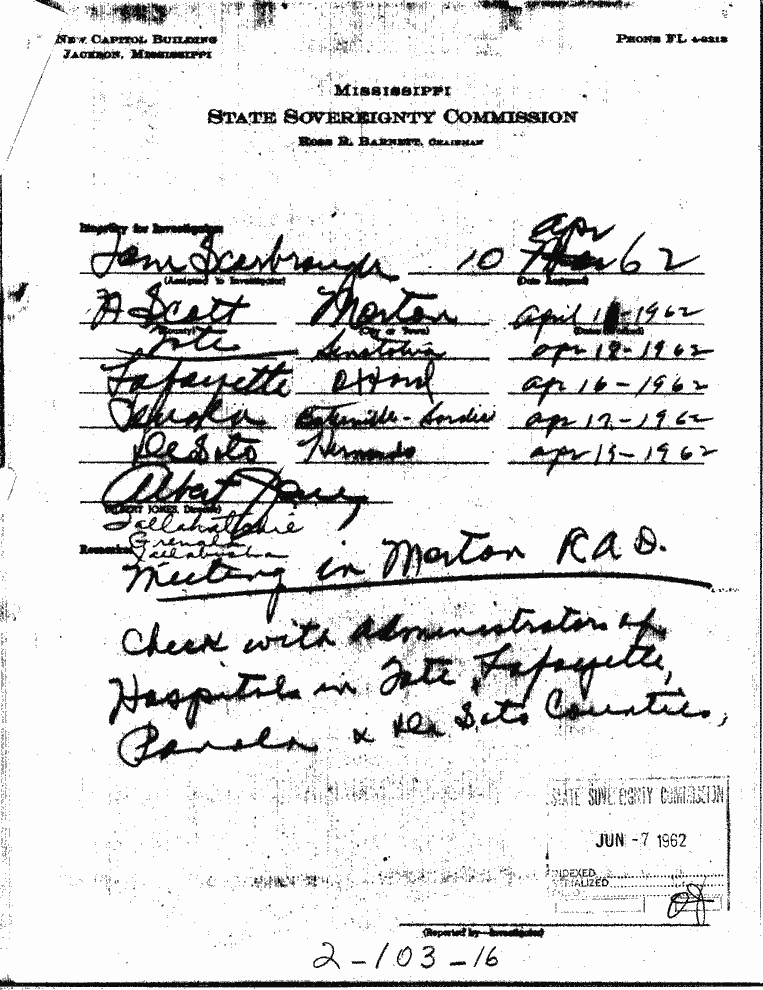 NEW CAPITOL BUILDING
JACKSON, MISSISSIPPI
PHONE FL 4-3218
MISSISSIPPI
STATE SOVEREIGNTY COMMISSION
ROSS R. BARNETT, CHAIRMAN
for Investigation
apr
Tom Scarbrough 10 62
(Assigned to Investigator) (Date Assigned)
Scott Morton April 1 -1962
(County) (City or Town)
Tate Senatobia apr 18-1962
Lafayette Oxford apr 16-1962
Panola Batesville-Sardis apr 17-1962
De Soto Hernando apr 19-1962
Albert Jones
(ALBERT JONES, Director)
Tallahatchie
Grenada
Remarks: Yallabusha
Meeting in Morton R A D.
Check with administrators of
Hospitals in Tate, Lafayette,
Panola & De Soto Counties,
STATE SOVEREIGNTY COMMISSION
JUN -7 1962
INDEXED
SERIALIZED
(Reported by—Investigator)
2-103-16